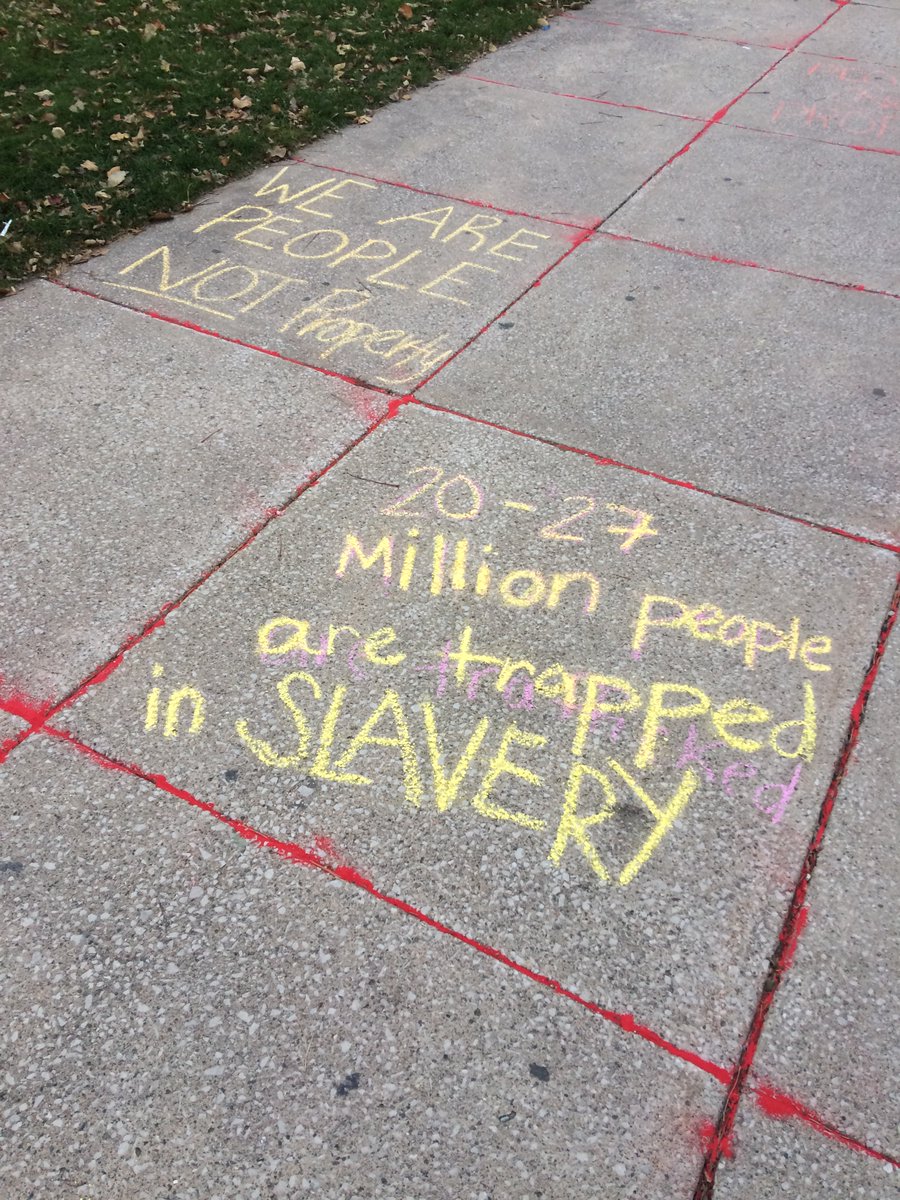 WE ARE
PEOPLE
NOT Property
20-27
Million people
are trapped
in SLAVERY